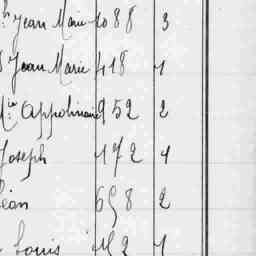 Jean Marie 1088 3
Jean Marie 418 1
Appolinaire 952 2
Joseph 172 4
Jean 658 2
Louis 2 1